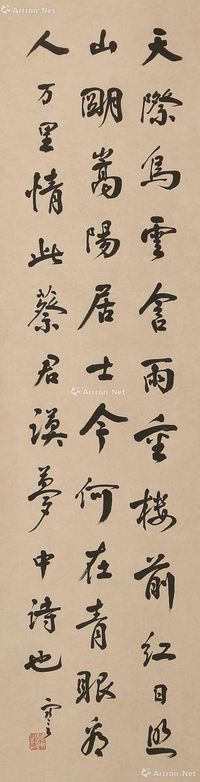 天際烏雲含雨重楼前紅日照
山朙嵩陽居士今何在青眼看
人万里情此蔡君謨夢中詩也
Artron.Net
Artron.Net
Artron.Net
Artron.Net
Artron.Net